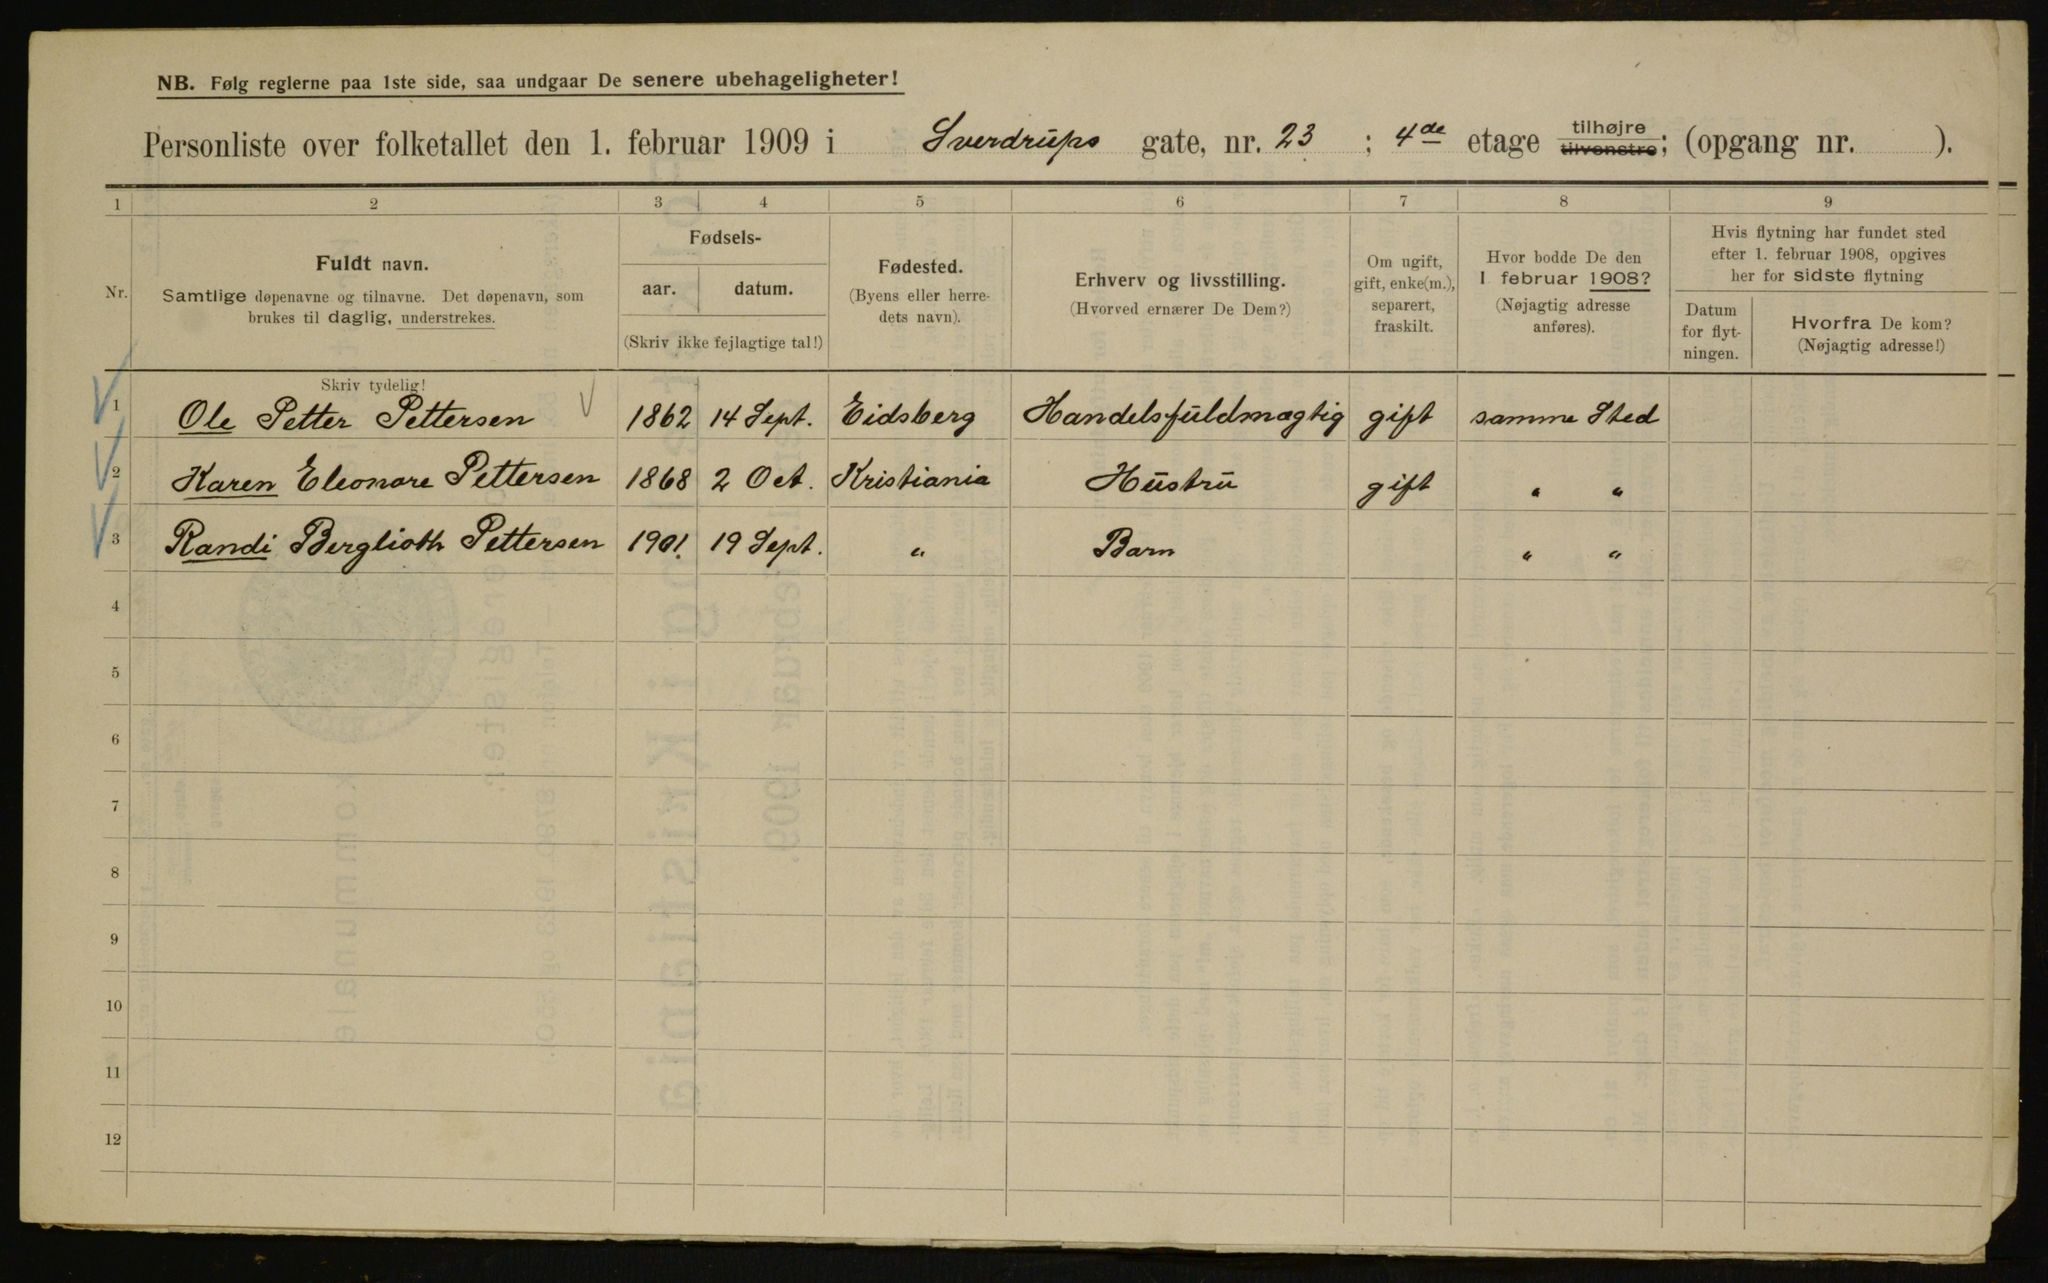 NB. Følg reglerne paa 1ste side, saa undgaar De senere ubehageligheter!
Personliste over folketallet den 1. februar 1909 i Sverdrups gate, nr. 23 ; 4de etage tilhøjre tilvenstre; (opgang nr. ).
1 2 3 4 5 6 7 8 9
Nr.
Fuldt navn.
Samtlige døpenavne og tilnavne. Det døpenavn, som
brukes til daglig, understrekes.
Fødsels-
aar. datum.
(Skriv ikke fejlagtige tal!)
Fødested.
(Byens eller herre-
dets navn).
Erhverv og livsstilling.
(Hvorved ernærer De Dem?)
Om ugift,
gift, enke(m.),
separert,
fraskilt.
Hvor bodde De den
1 februar 1908?
(Nøjagtig adresse
anføres).
Hvis flytning har fundet sted
efter 1. februar 1908, opgives
her for sidste flytning
Datum
for flyt-
ningen.
Hvorfra De kom?
(Nøjagtig adresse!)
Skriv tydelig!
1 Ole Petter Pettersen 1862 14 Sept. Eidsberg Handelsfuldmægtig gift samme Sted
2 Karen Eleonore Pettersen 1868 2 Oct. Kristiania Hustru gift " "
3 Randi Berglioth Pettersen 1901. 19 Sept. " Barn " "
4
5
6
7
8
9
10
11
12